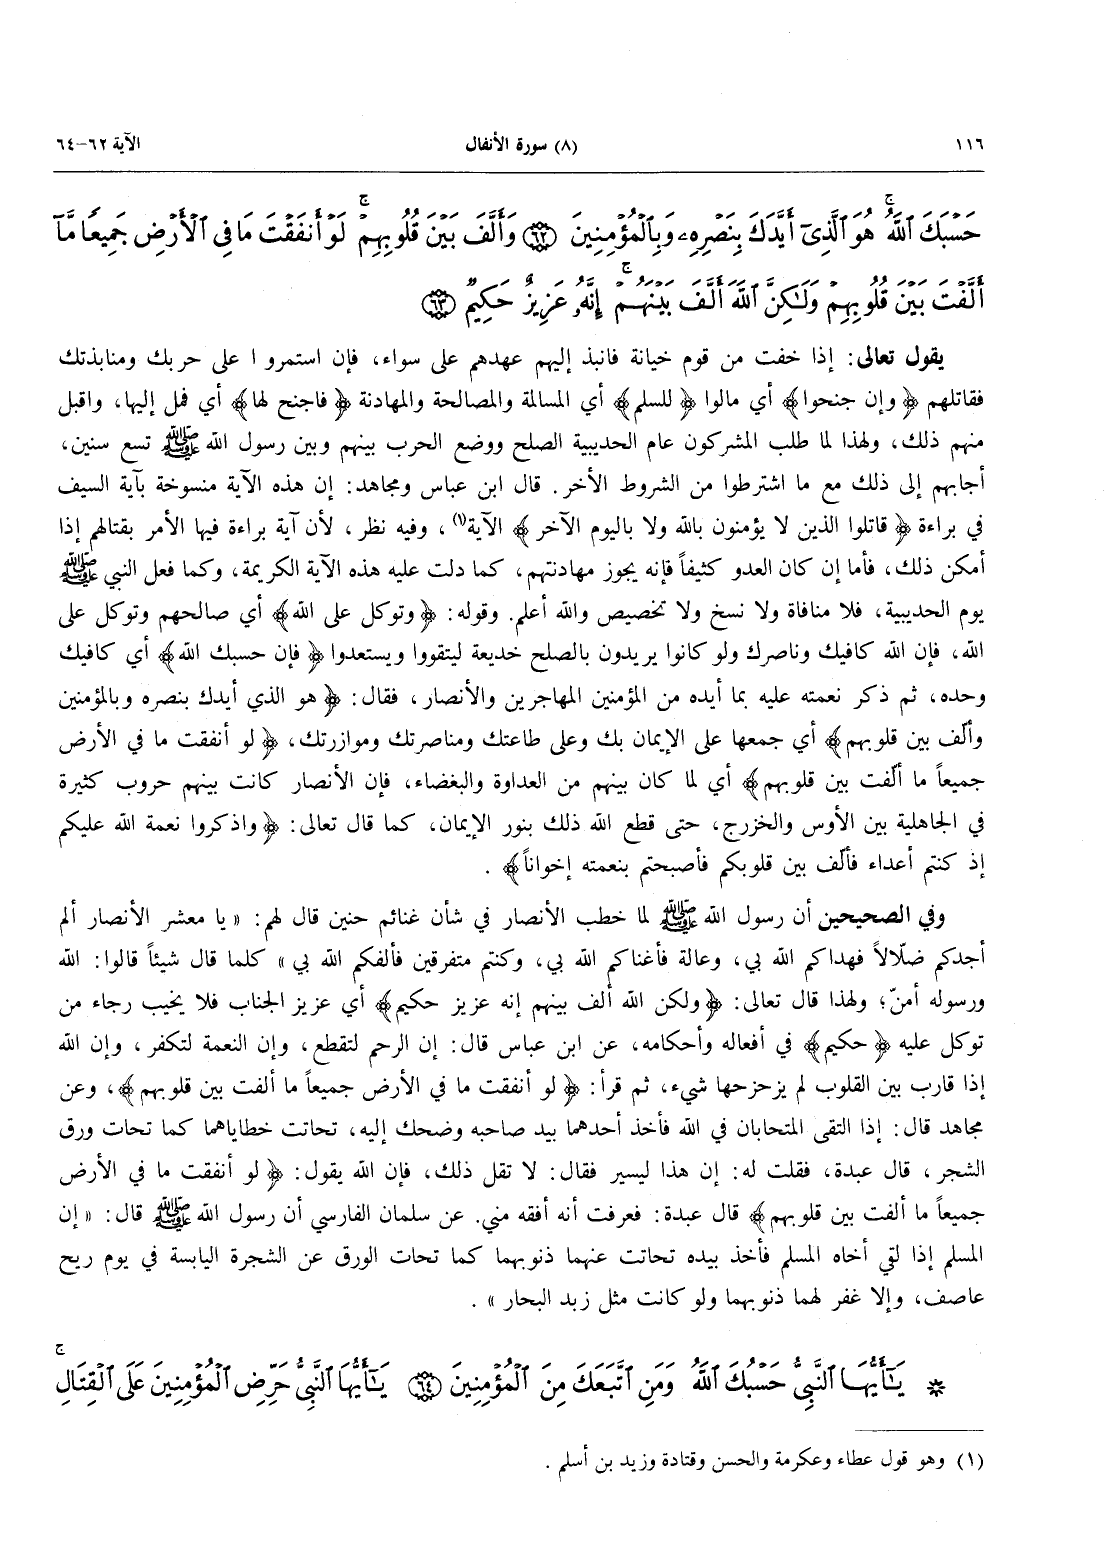 ١١٦ (٨) سورة الأنفال الآية ٦٢-٦٤
حَسْبَكَ ٱللَّهُ ۚ هُوَ ٱلَّذِىٓ أَيَّدَكَ بِنَصْرِهِۦ وَبِٱلْمُؤْمِنِينَ ﴿٦٢﴾ وَأَلَّفَ بَيْنَ قُلُوبِهِمْ ۚ لَوْ أَنفَقْتَ مَا فِى ٱلْأَرْضِ جَمِيعًا مَّآ
أَلَّفْتَ بَيْنَ قُلُوبِهِمْ وَلَـٰكِنَّ ٱللَّهَ أَلَّفَ بَيْنَهُمْ ۚ إِنَّهُۥ عَزِيزٌ حَكِيمٌ ﴿٦٣﴾
يقول تعالى: إذا خفت من قوم خيانة فانبذ إليهم عهدهم على سواء، فإن استمروا على حربك ومنابذتك
فقاتلهم ﴿وإن جنحوا﴾ أي مالوا ﴿للسلم﴾ أي المسالمة والمصالحة والمهادنة ﴿فاجنح لها﴾ أي فمل إليها، واقبل
منهم ذلك، ولهذا لما طلب المشركون عام الحديبية الصلح ووضع الحرب بينهم وبين رسول الله ﷺ تسع سنين،
أجابهم إلى ذلك مع ما اشترطوا من الشروط الأخر. قال ابن عباس ومجاهد: إن هذه الآية منسوخة بآية السيف
في براءة ﴿قاتلوا الذين لا يؤمنون بالله ولا باليوم الآخر﴾ الآية(١)، وفيه نظر، لأن آية براءة فيها الأمر بقتالهم إذا
أمكن ذلك، فأما إن كان العدو كثيفاً فإنه يجوز مهادنتهم، كما دلت عليه هذه الآية الكريمة، وكما فعل النبي ﷺ
يوم الحديبية، فلا منافاة ولا نسخ ولا تخصيص والله أعلم. وقوله: ﴿وتوكل على الله﴾ أي صالحهم وتوكل على
الله، فإن الله كافيك وناصرك ولو كانوا يريدون بالصلح خديعة ليتقووا ويستعدوا ﴿فإن حسبك الله﴾ أي كافيك
وحده، ثم ذكر نعمته عليه بما أيده من المؤمنين المهاجرين والأنصار، فقال: ﴿هو الذي أيدك بنصره وبالمؤمنين
وألّف بين قلوبهم﴾ أي جمعها على الإيمان بك وعلى طاعتك ومناصرتك وموازرتك، ﴿لو أنفقت ما في الأرض
جميعاً ما ألّفت بين قلوبهم﴾ أي لما كان بينهم من العداوة والبغضاء، فإن الأنصار كانت بينهم حروب كثيرة
في الجاهلية بين الأوس والخزرج، حتى قطع الله ذلك بنور الإيمان، كما قال تعالى: ﴿واذكروا نعمة الله عليكم
إذ كنتم أعداء فألّف بين قلوبكم فأصبحتم بنعمته إخواناً﴾.
وفي الصحيحين أن رسول الله ﷺ لما خطب الأنصار في شأن غنائم حنين قال لهم: « يا معشر الأنصار ألم
أجدكم ضلّالاً فهداكم الله بي، وعالة فأغناكم الله بي، وكنتم متفرقين فألفكم الله بي » كلما قال شيئاً قالوا: الله
ورسوله أمنّ؛ ولهذا قال تعالى: ﴿ولكن الله ألف بينهم إنه عزيز حكيم﴾ أي عزيز الجناب فلا يخيب رجاء من
توكل عليه ﴿حكيم﴾ في أفعاله وأحكامه، عن ابن عباس قال: إن الرحم لتقطع، وإن النعمة لتكفر، وإن الله
إذا قارب بين القلوب لم يزحزحها شيء، ثم قرأ: ﴿لو أنفقت ما في الأرض جميعاً ما ألفت بين قلوبهم﴾، وعن
مجاهد قال: إذا التقى المتحابان في الله فأخذ أحدهما بيد صاحبه وضحك إليه، تحاتت خطاياهما كما تحات ورق
الشجر، قال عبدة، فقلت له: إن هذا ليسير فقال: لا تقل ذلك، فإن الله يقول: ﴿لو أنفقت ما في الأرض
جميعاً ما ألفت بين قلوبهم﴾ قال عبدة: فعرفت أنه أفقه مني. عن سلمان الفارسي أن رسول الله ﷺ قال: « إن
المسلم إذا لقي أخاه المسلم فأخذ بيده تحاتت عنهما ذنوبهما كما تحات الورق عن الشجرة اليابسة في يوم ريح
عاصف، وإلا غفر لهما ذنوبهما ولو كانت مثل زبد البحار ».
* يَـٰٓأَيُّهَا ٱلنَّبِىُّ حَسْبُكَ ٱللَّهُ وَمَنِ ٱتَّبَعَكَ مِنَ ٱلْمُؤْمِنِينَ ﴿٦٤﴾ يَـٰٓأَيُّهَا ٱلنَّبِىُّ حَرِّضِ ٱلْمُؤْمِنِينَ عَلَى ٱلْقِتَالِ ۚ
(١) وهو قول عطاء وعكرمة والحسن وقتادة وزيد بن أسلم.